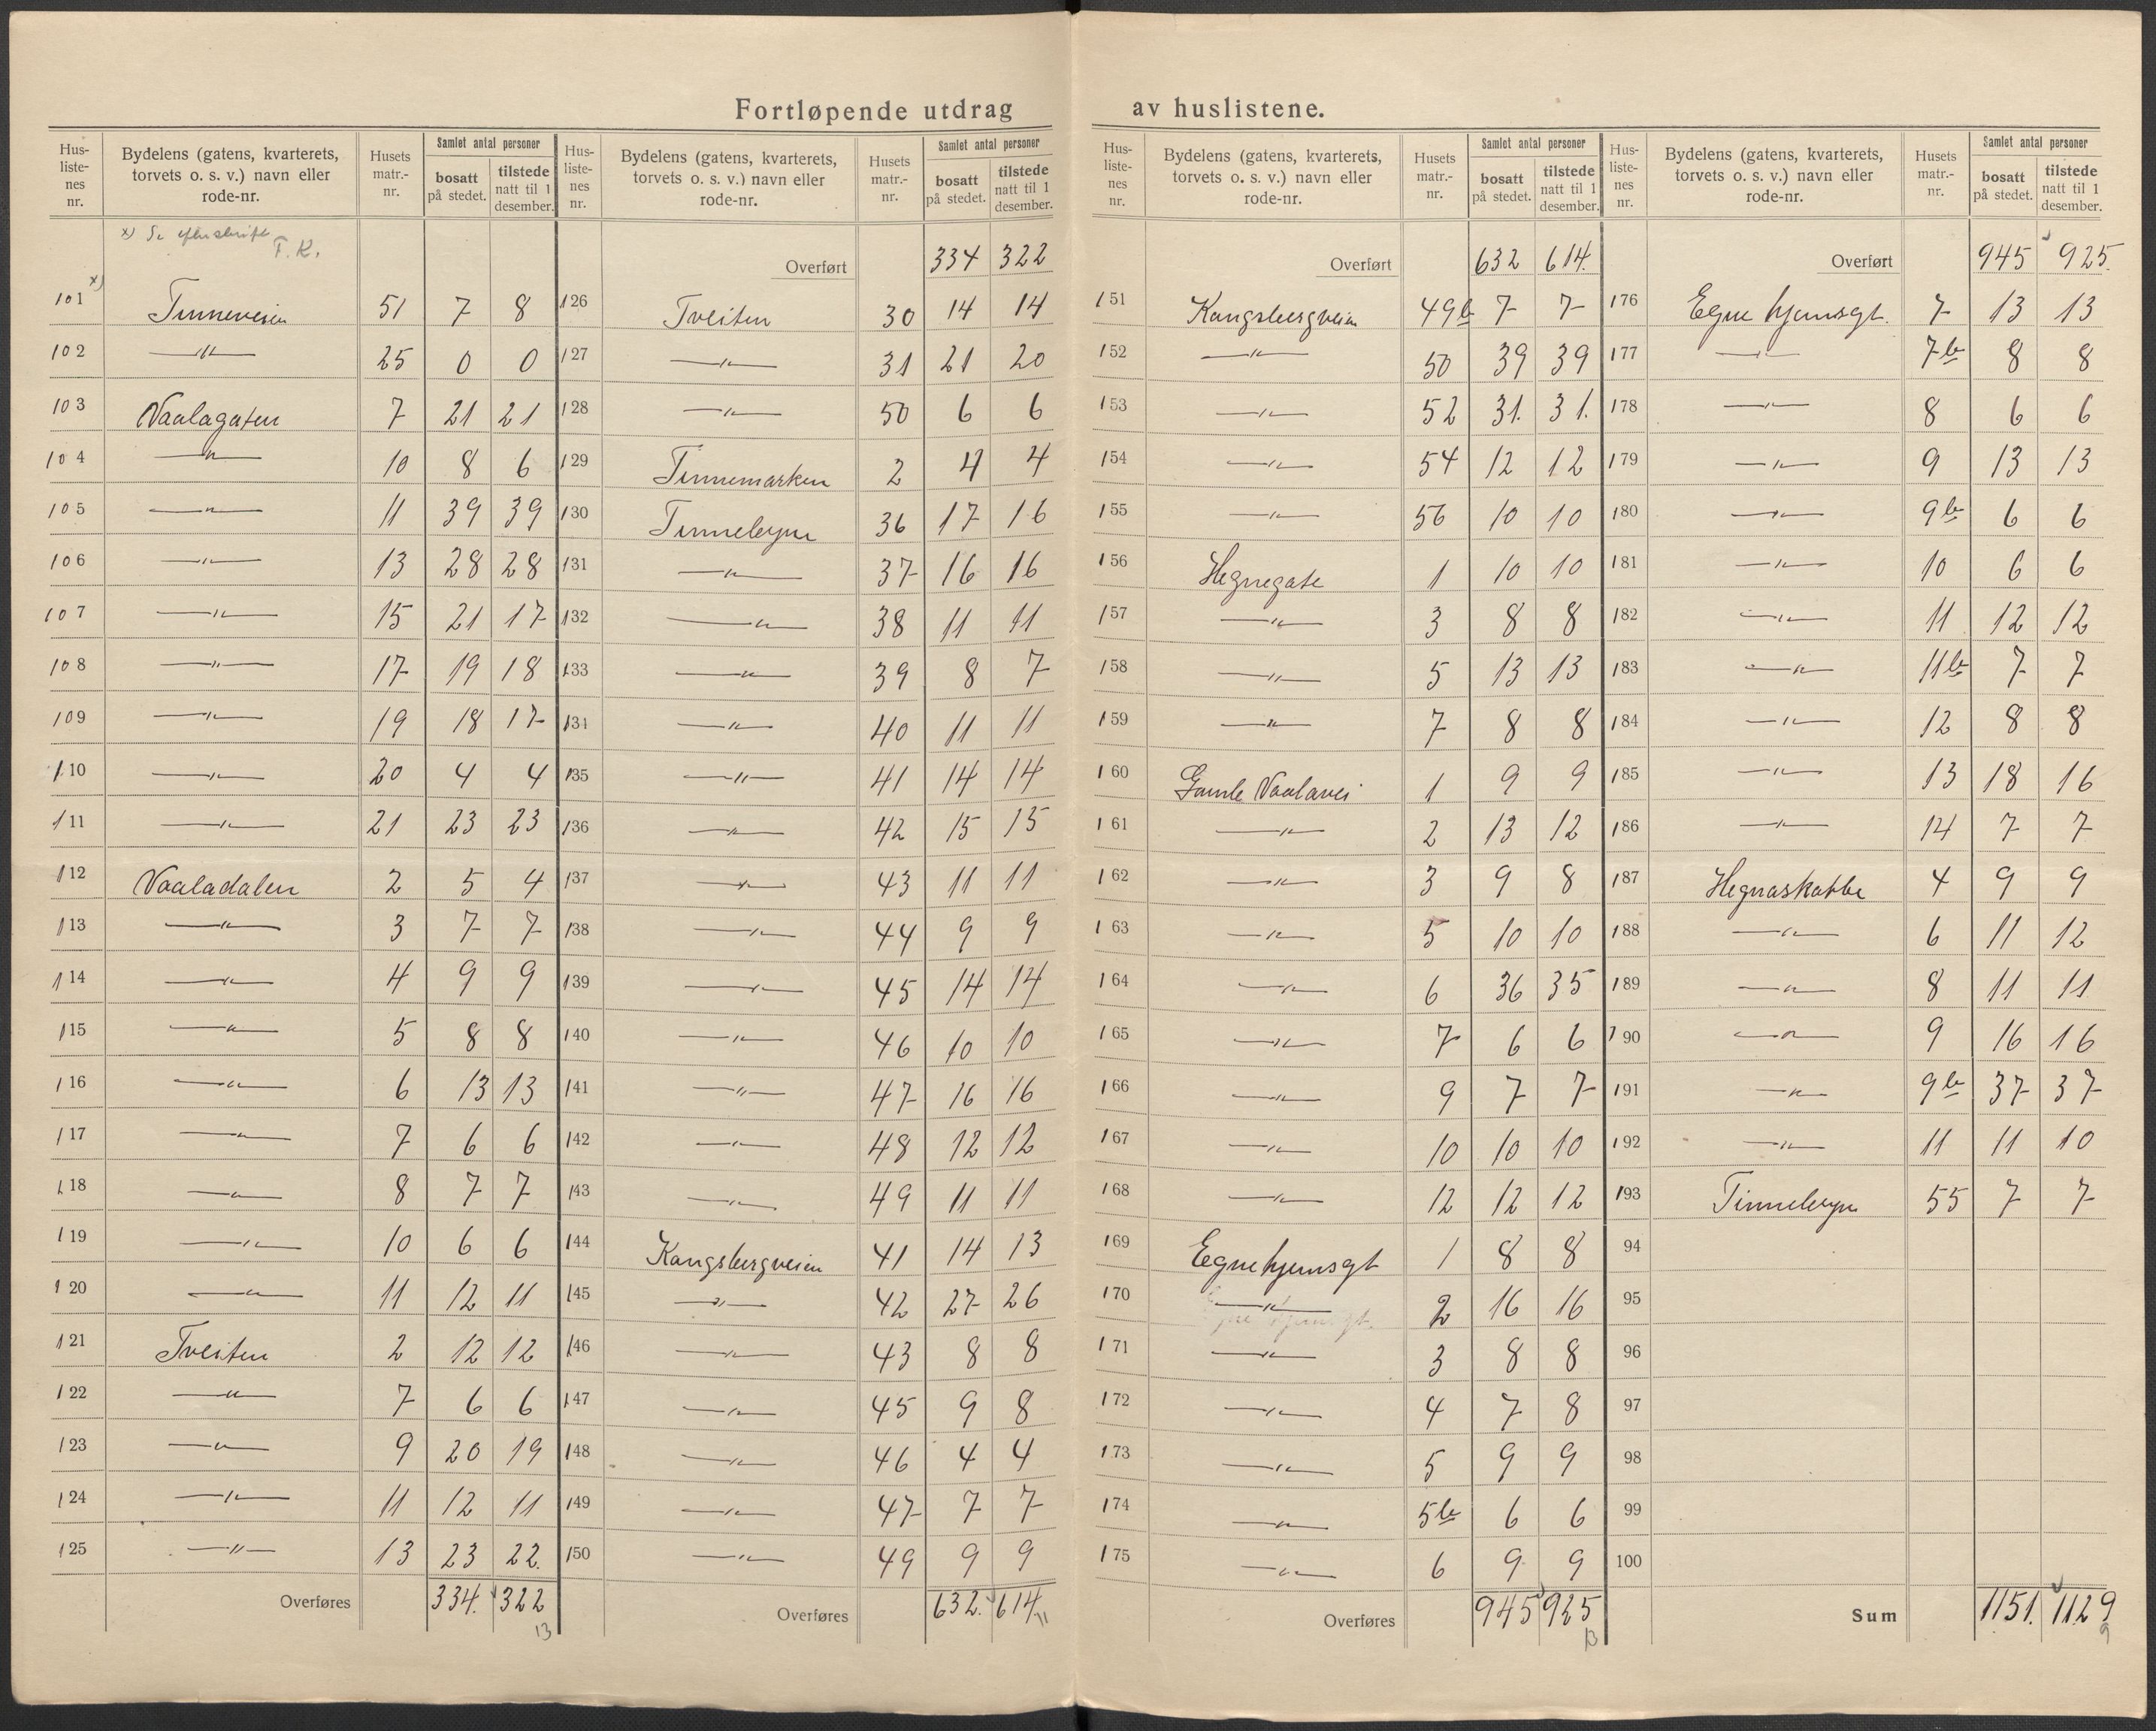 Fortløpende utdrag av huslistene.
Hus-liste-nes nr. | Bydelens (gatens, kvarterets, torvets o. s. v.) navn eller rode-nr. | Husets matr.-nr. | Samlet antal personer | bosatt på stedet. | tilstede natt til 1 desember.
x) Se efterskrift T. K.
101 x) Tinneveien 51 7 8
102 —"— 25 0 0
103 Vaalagaten 7 21 21
104 —"— 10 8 6
105 —"— 11 39 39
106 —"— 13 28 28
107 —"— 15 21 17
108 —"— 17 19 18
109 —"— 19 18 17
110 —"— 20 4 4
111 —"— 21 23 23
112 Vaaladalen 2 5 4
113 —"— 3 7 7
114 —"— 4 9 9
115 —"— 5 8 8
116 —"— 6 13 13
117 —"— 7 6 6
118 —"— 8 7 7
119 —"— 10 6 6
120 —"— 11 12 11
121 Tveiten 2 12 12
122 —"— 7 6 6
123 —"— 9 20 19
124 —"— 11 12 11
125 —"— 13 23 22.
Overføres 334. 322
13
Hus-liste-nes nr. | Bydelens (gatens, kvarterets, torvets o. s. v.) navn eller rode-nr. | Husets matr.-nr. | Samlet antal personer | bosatt på stedet. | tilstede natt til 1 desember.
Overført 334 322
126 Tveiten 30 14 14
127 —"— 31 21 20
128 —"— 50 6 6
129 Tinnemarken 2 4 4
130 Tinnebyen 36 17 16
131 —"— 37 16 16
132 —"— 38 11 11
133 —"— 39 8 7
134 —"— 40 11 11
135 —"— 41 14 14
136 —"— 42 15 15
137 —"— 43 11 11
138 —"— 44 9 9
139 —"— 45 14 14
140 —"— 46 10 10
141 —"— 47 16 16
142 —"— 48 12 12
143 —"— 49 11 11
144 Kongsbergveien 41 14 13
145 —"— 42 27 26
146 —"— 43 8 8
147 —"— 45 9 8
148 —"— 46 4 4
149 —"— 47 7 7
150 —"— 49 9 9
Overføres 632. 614.
11
Hus-liste-nes nr. | Bydelens (gatens, kvarterets, torvets o. s. v.) navn eller rode-nr. | Husets matr.-nr. | Samlet antal personer | bosatt på stedet. | tilstede natt til 1 desember.
Overført 632 614.
151 Kongsbergveien 49b 7 7
152 —"— 50 39 39
153 —"— 52 31. 31.
154 —"— 54 12 12
155 —"— 56 10 10
156 Hegnegate 1 10 10
157 —"— 3 8 8
158 —"— 5 13 13
159 —"— 7 8 8
160 Gamle Vaalavei 1 9 9
161 —"— 2 13 12
162 —"— 3 9 8
163 —"— 5 10 10
164 —"— 6 36 35
165 —"— 7 6 6
166 —"— 9 7 7
167 —"— 10 10 10
168 —"— 12 12 12
169 Egnehjemsgt 1 8 8
170 —"— 2 16 16
171 —"— 3 8 8
172 —"— 4 7 8
173 —"— 5 9 9
174 —"— 5b 6 6
175 —"— 6 9 9
Overføres 945 925
13
Hus-liste-nes nr. | Bydelens (gatens, kvarterets, torvets o. s. v.) navn eller rode-nr. | Husets matr.-nr. | Samlet antal personer | bosatt på stedet. | tilstede natt til 1 desember.
Overført 945 925.
176 Egne hjemsgt. 7 13 13
177 —"— 7b 8 8
178 —"— 8 6 6
179 —"— 9 13 13
180 —"— 9b 6 6
181 —"— 10 6 6
182 —"— 11 12 12
183 —"— 11b 7 7
184 —"— 12 8 8
185 —"— 13 18 16
186 —"— 14 7 7
187 Hegnaskabbe 4 9 9
188 —"— 6 11 12
189 —"— 8 11 11
190 —"— 9 16 16
191 —"— 9b 37 37
192 —"— 11 11 10
193 Tinnebyen 55 7 7
94
95
96
97
98
99
100
Sum 1151. 1129
9